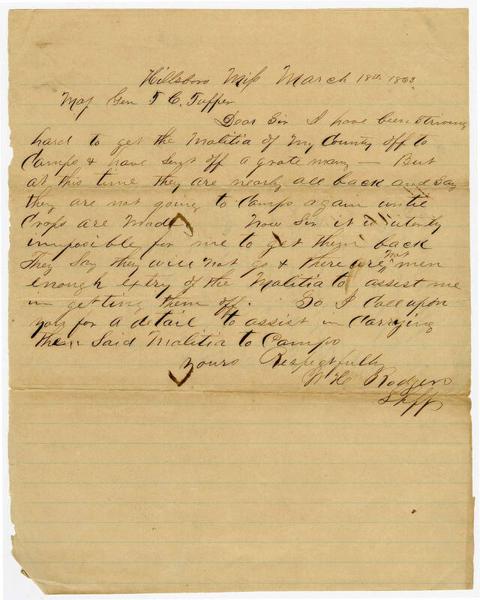 Hillsboro Miss March 18th 1863
Maj Gen T C Tupper
Dear Sir I have been striving
hard to get the Malitia of my County off to
Camps & have Sent off a grate many — But
at this time they are nearly all back and Say
they are not going to Camps again until
Crops are Made Now Sir it is uterly
imposible for me to get them back
They Say they will not go & there are not men
enough extry of the Malitia to assist me
in getting them off. So I Call upon
you for a detail to assist in Carrying
them Said Malitia to Camps
Yours Respectfully
W H Rodgers
Shff